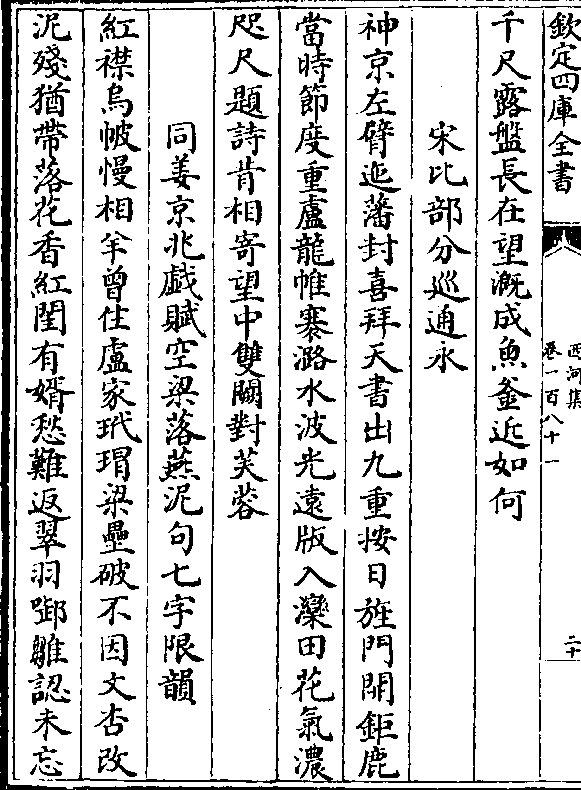 欽定四庫全書
西河集
卷一百八十一
二十
千尺露盤長在望溉成魚釜近如何
宋比部分巡通永
神京左臂迤藩封喜拜天書出九重按日旌門開鉅鹿
當時節度重盧龍帷褰潞水波光遠版入灤田花氣濃
咫尺題詩肯相寄望中雙闕對芙蓉
同姜京兆戲賦空梁落燕泥句七字限韻
紅襟烏帔慢相牟曾住盧家玳瑁梁壘破不因文杏改
泥殘猶帶落花香紅閨有婿愁難返翠羽啣雛認未忘